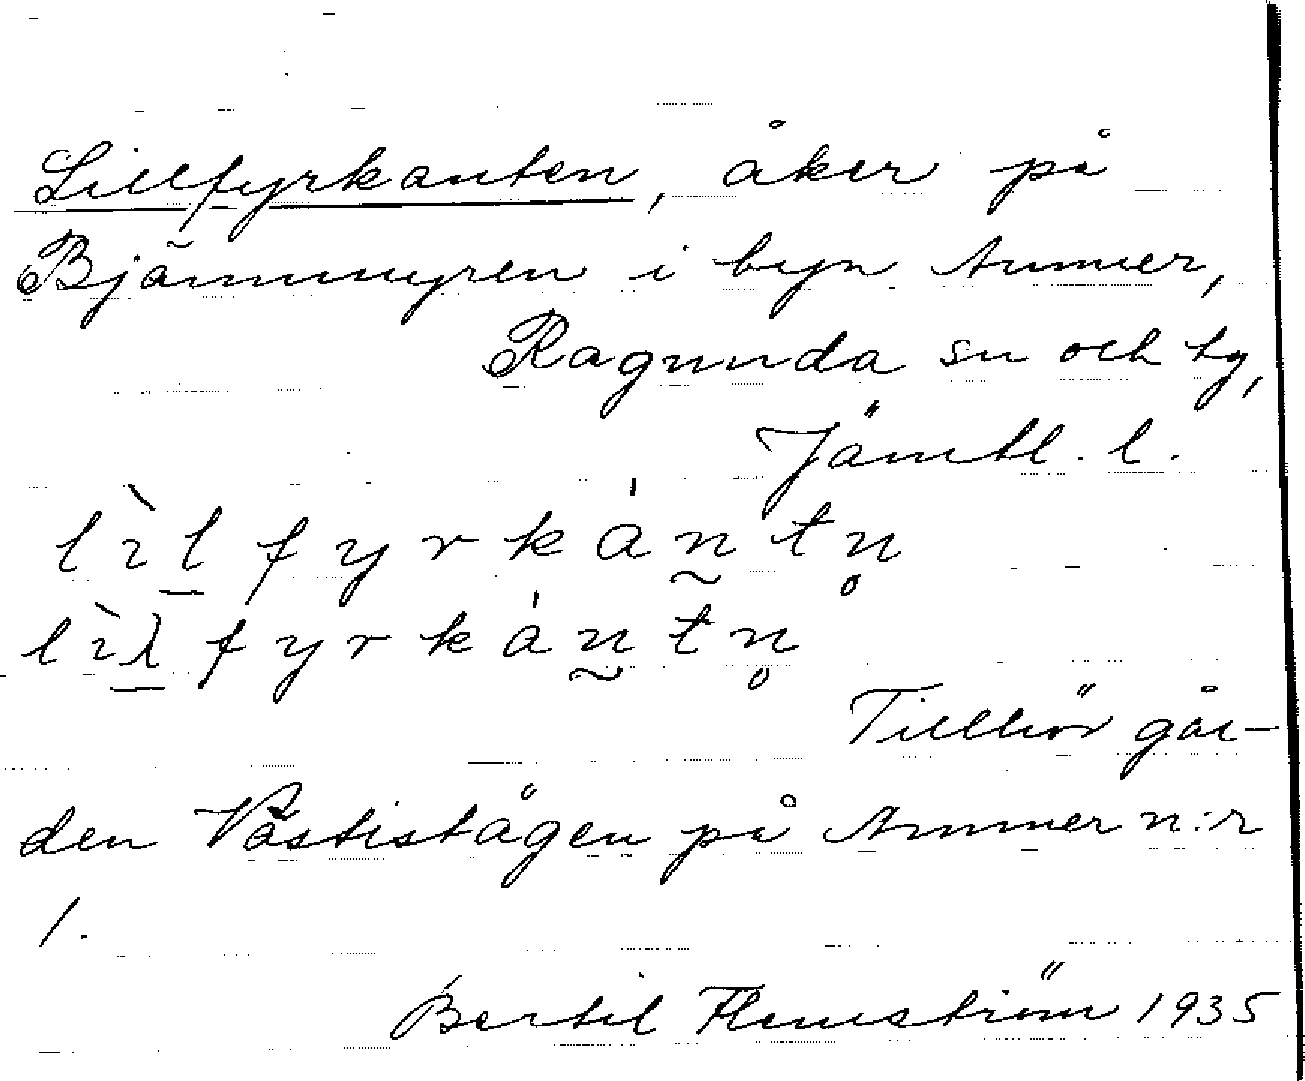 Lillfyrkanten, åker på
Bjärnmyren i byn Ammer,
Ragunda sn och tg,
Jämtl. l.
lìl fyrkántn̥
lìλ fyrkántn̥
Tillhör går-
den på Ammer n:r
1.
Bertil Flemström 1935